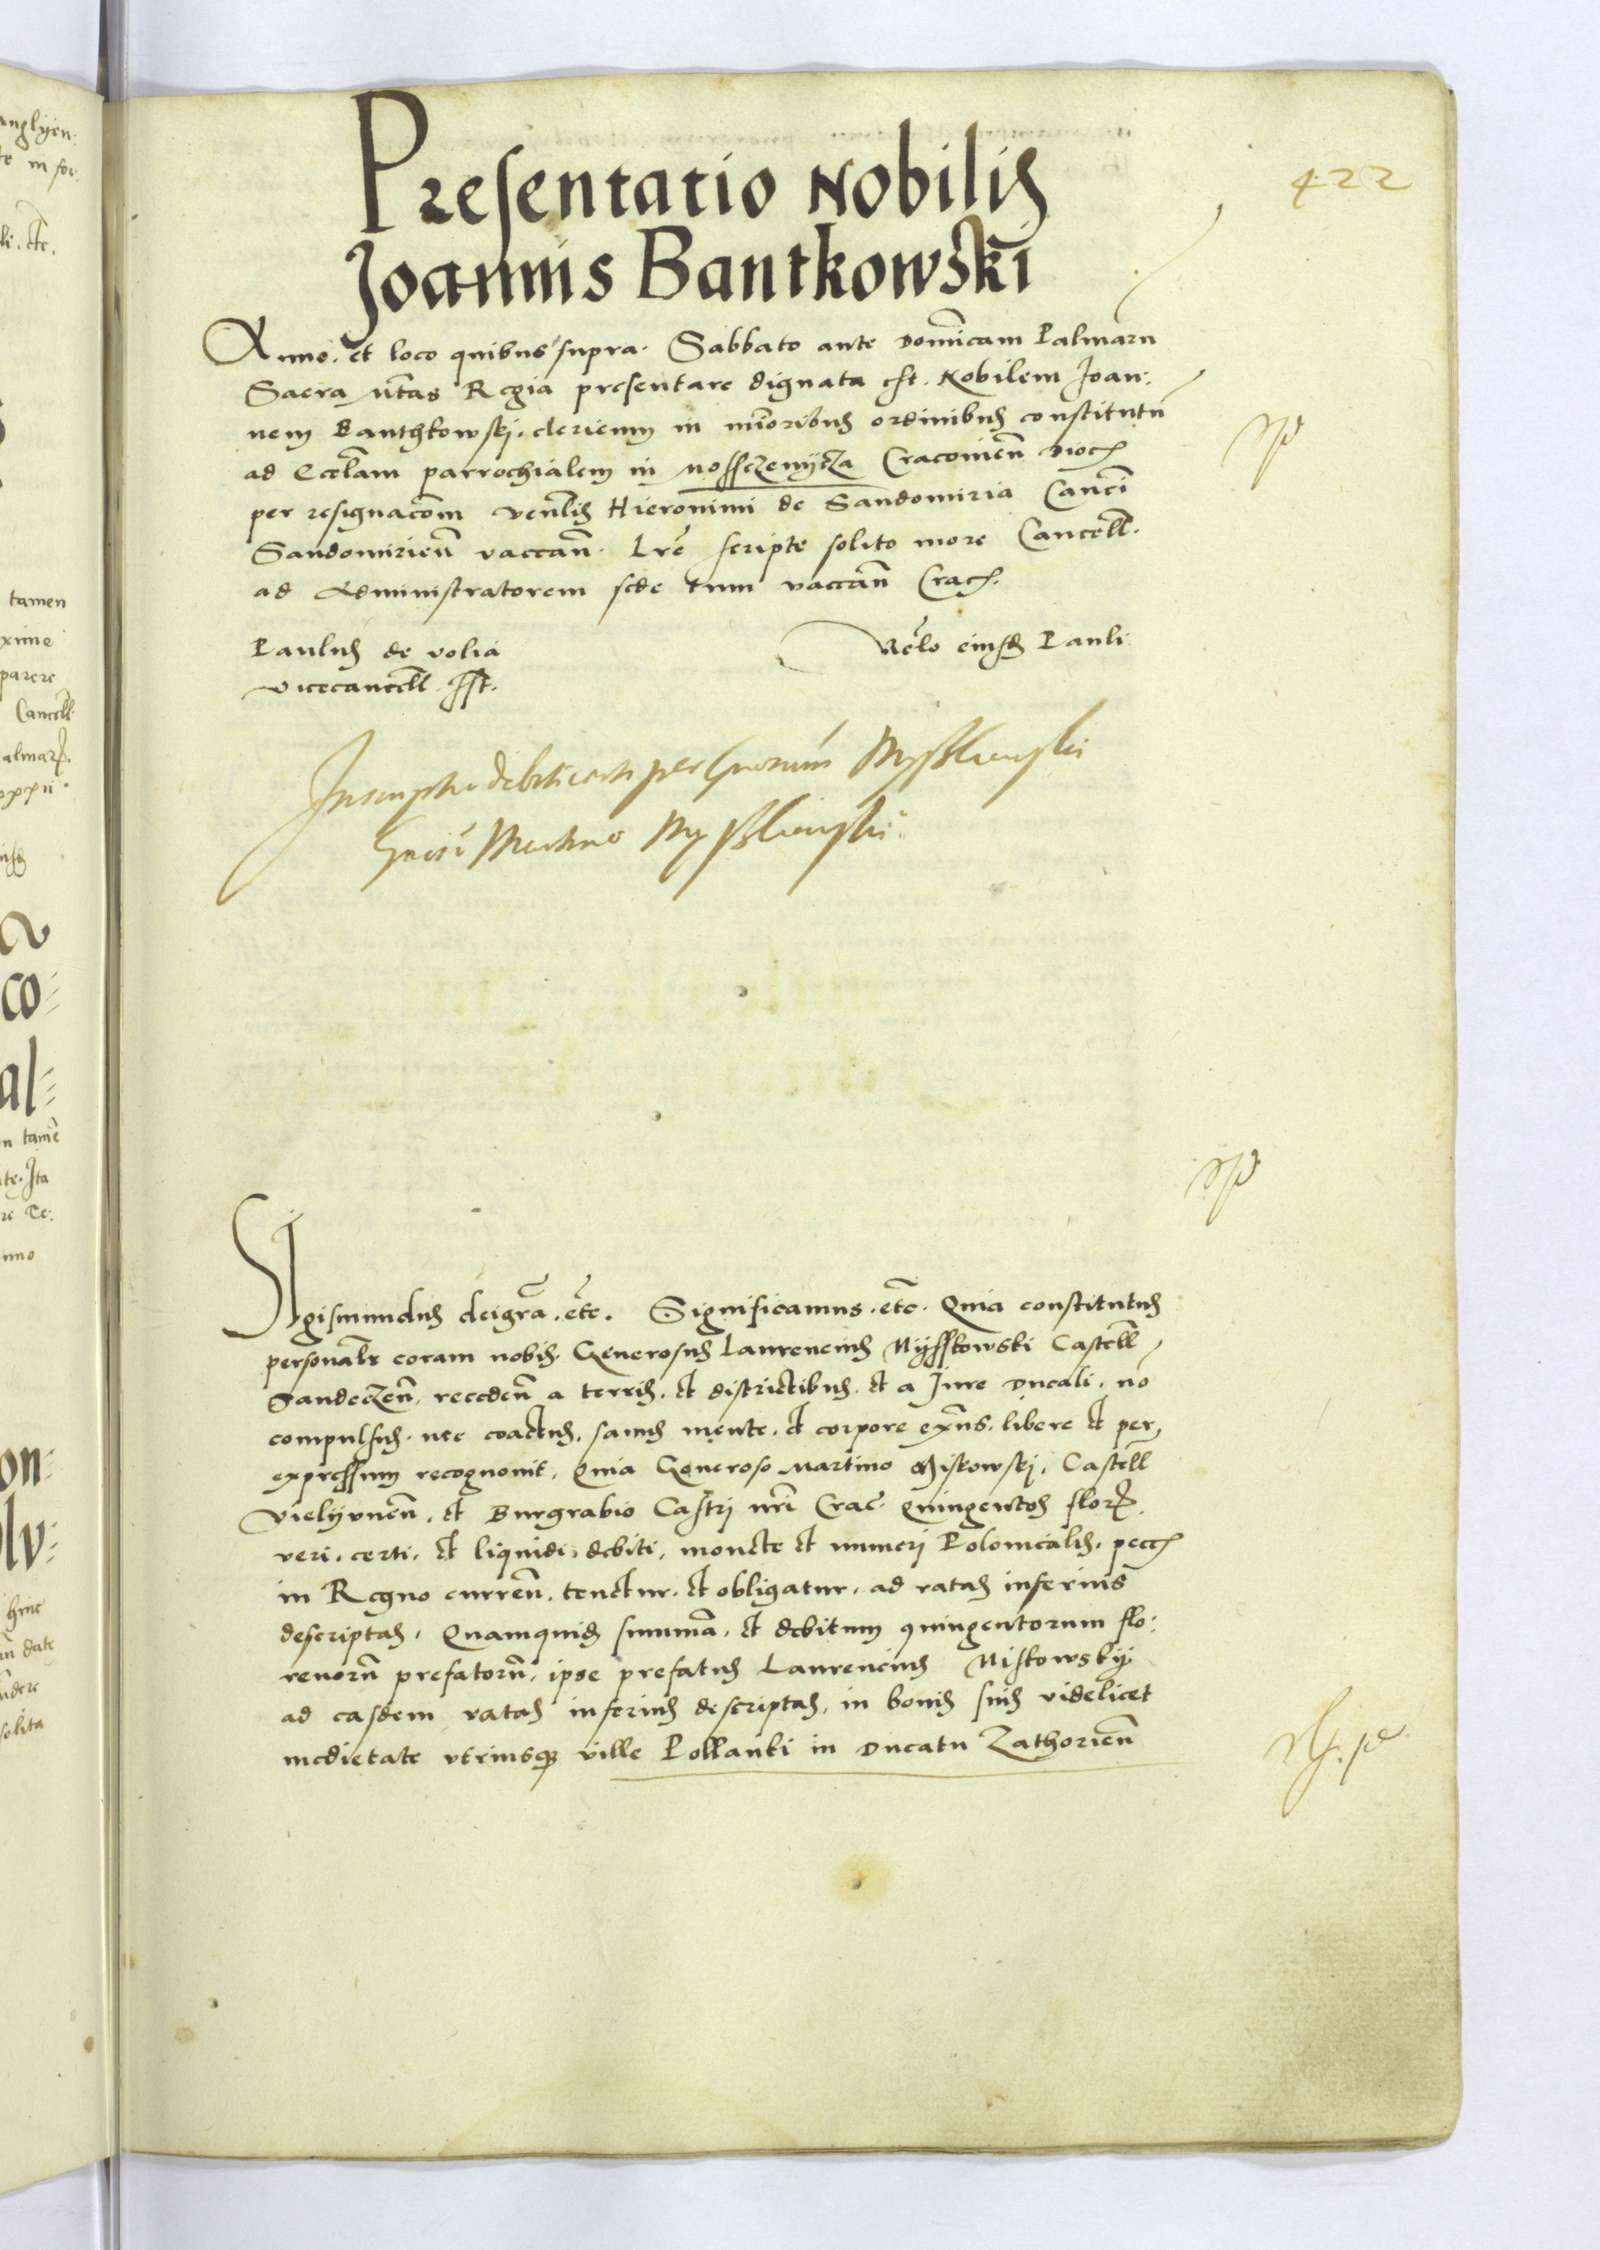 422
Presentatio Nobilis
Joannis Bantkowski
Anno. et loco quibus supra. Sabbato ante Domīcam Palmarū
Sacra Mtas Regia presentare dignata est. Nobilem Joan:
nem Banthkowskj. clericum in mīoribus ordinibus constitutū
ad Eccłam parrochialem in Mosszczenycza Cracovieñ Dioc
per resignacōm venłis Hieronimi de Sandomiria Canci
Sandomirieñ vaccañ. Lrē scripte solito more Cancell.
ad Administratorem sede tum vaccañ Crac.
Paulus de volia
Rēlo eiusd Pauli
vicecancell. sst.
Inscriptio debiti per Gnosum Myszkowski
Gnoso Martino Myszkowski.
Sigismundus dei grā. etc. Significamus. etc. Quia constitutus
personalr coram nobis. Generosus Laurencius Myszkowski Castell
Sandeczeñ, recedeñ a terris. et districtibus. et a Jure Ducali. nō
compulsus. nec coactus. sanus mente. et corpore exñs. libere et per
expressum recognovit. Quia Generoso Martino Miskowskj. Castell
Vielyuneñ. et Burgrabio Castrj nri Crac. Quingentos flor.
veri. certi. et liquidi debiti. monete et numerj Polonicalis. pecc
in Regno curreñ. tenetur. et obligatur. ad ratas inferius
descriptas. Quamquid summā. et debitum quingentorum flo:
renorū prefatorū. ipse prefatus Laurencius Miskowskÿ
ad easdem ratas inferius descriptas. in bonis suis videlicet
medietate utriusque ville Pollanki in Ducatu Zathorieñ